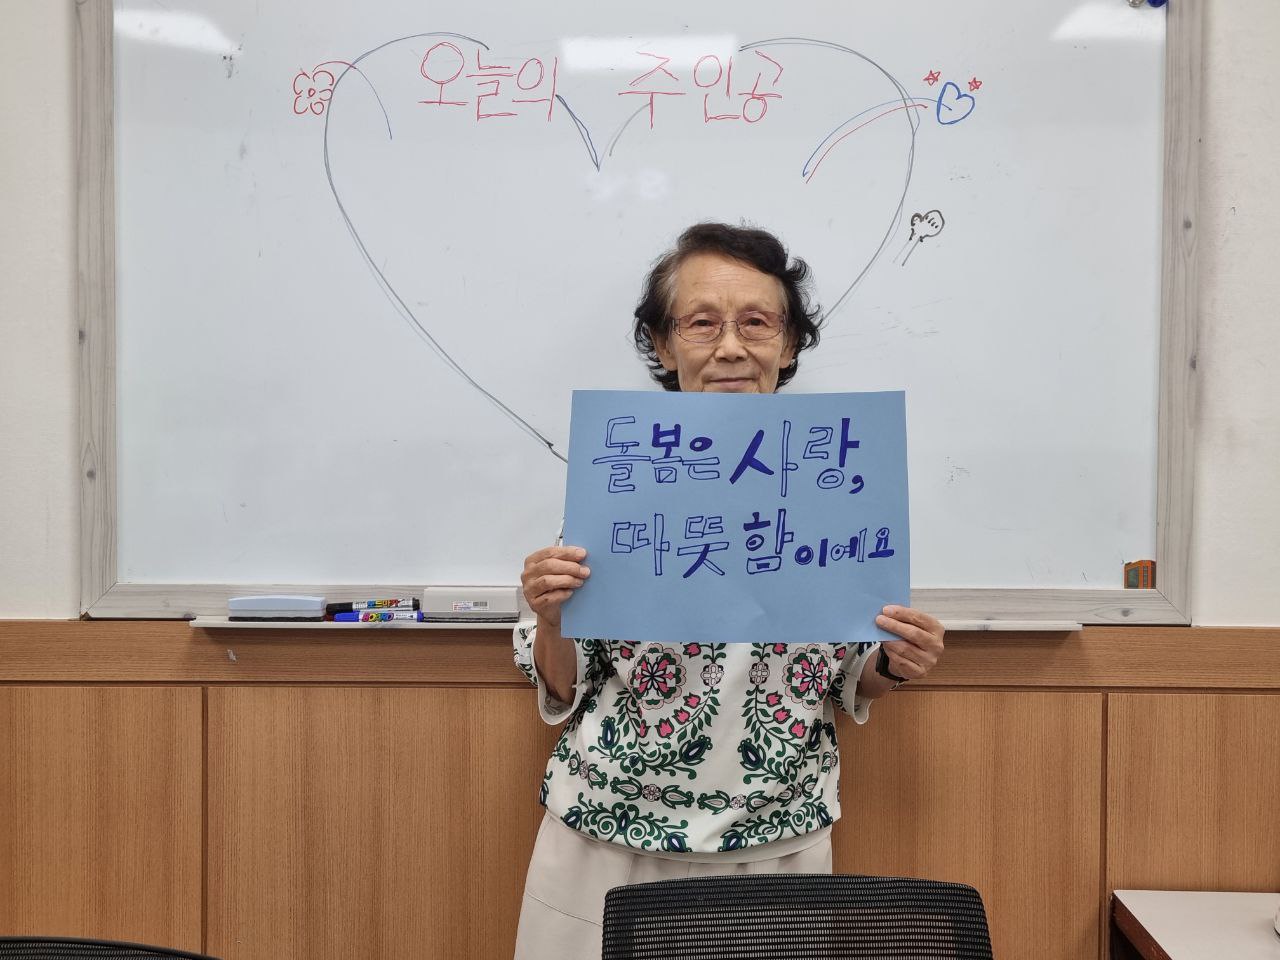 오늘의 주인공
돌봄은 사랑,
따뜻함이예요